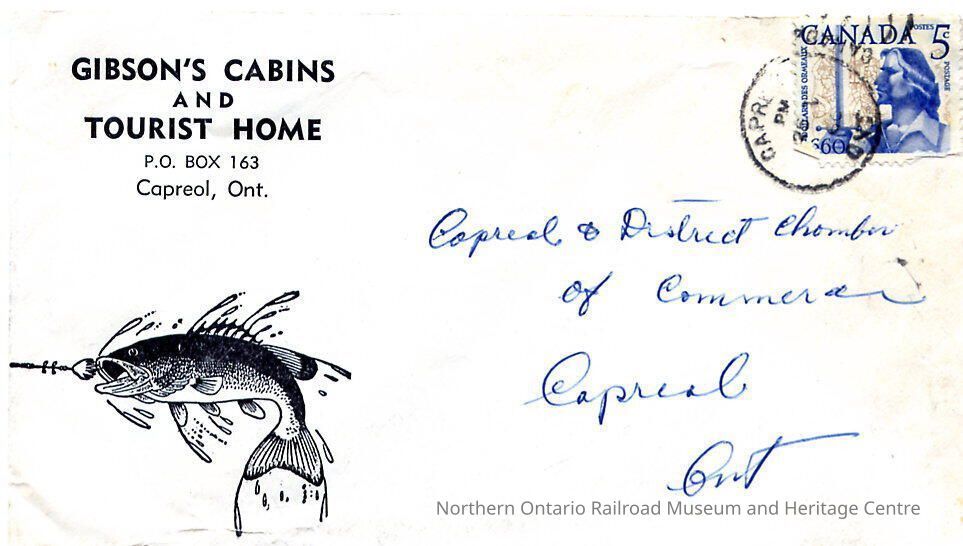 GIBSON'S CABINS
AND
TOURIST HOME
P.O. BOX 163
Capreol, Ont.
CANADA POSTES 5c
POSTAGE
DES ORMEAUX
PM
Capreol & District Chamber
of Commerce
Capreol
Ont
Northern Ontario Railroad Museum and Heritage Centre